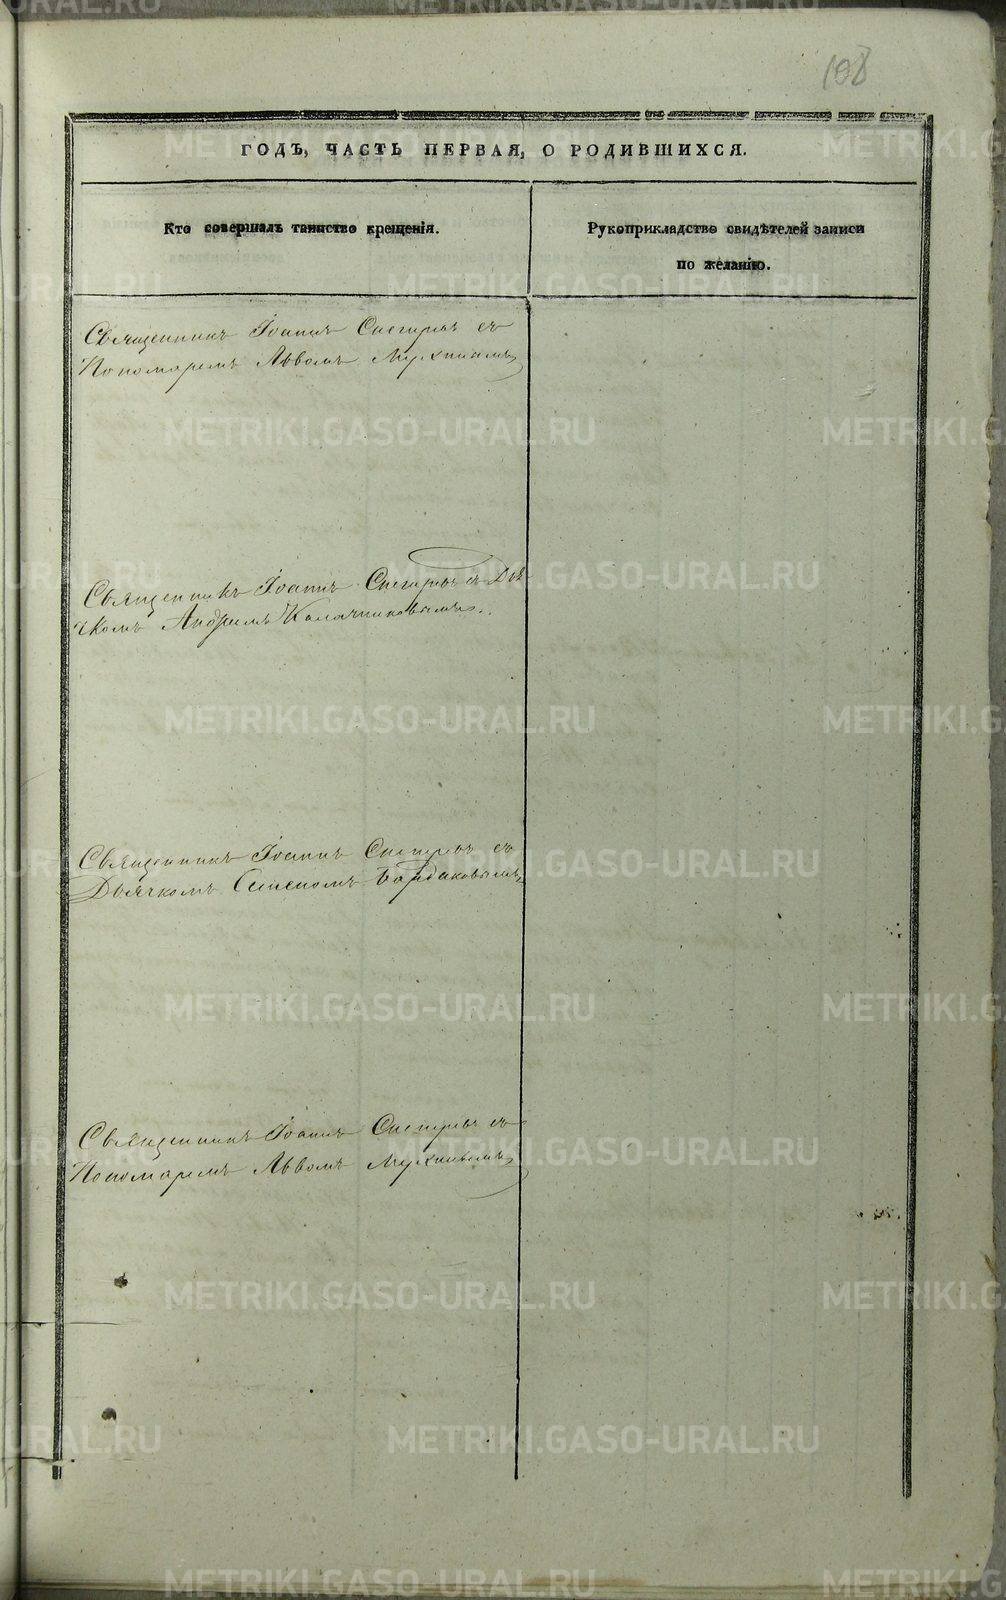 108
ГОДЪ, ЧАСТЬ ПЕРВАЯ, О РОДИВШИХСЯ.
Кто совершалъ таинство крещенія.
Рукоприкладство свидѣтелей записи
по желанію.
Священникъ Іоаннъ Снегиревъ съ
Пономаремъ Львомъ Мухинымъ
Священникъ Іоаннъ Снегиревъ съ Дья-
чкомъ Андреемъ Калачниковымъ.
Священникъ Іоаннъ Снегиревъ съ
Дьячкомъ Семеномъ
Священникъ Іоаннъ Снегиревъ съ
Пономаремъ Львомъ Мухинымъ
METRIKI.GASO-URAL.RU